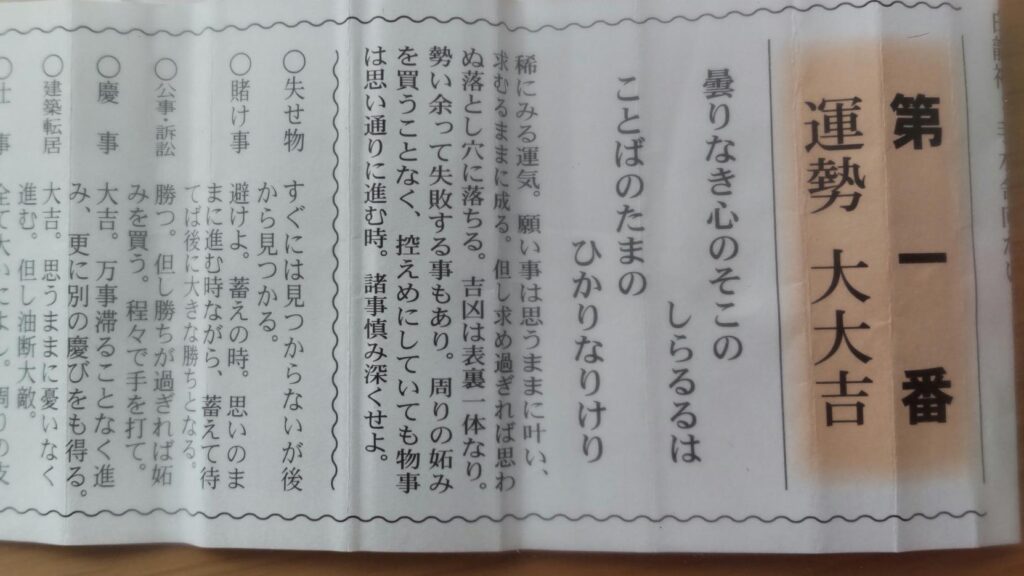 第一番
運勢 大大吉
曇りなき心のそこの
しらるるは
ことばのたまの
ひかりなりけり
稀にみる運気。願い事は思うままに叶い、
求むるままに成る。但し求め過ぎれば思わ
ぬ落とし穴に落ちる。吉凶は表裏一体なり。
勢い余って失敗する事もあり。周りの妬み
を買うことなく、控えめにしていても物事
は思い通りに進む時。諸事慎み深くせよ。
○失せ物 すぐには見つからないが後
から見つかる。
○賭け事 避けよ。蓄えの時。思いのま
まに進む時ながら、蓄えて待
てば後に大きな勝ちとなる。
○公事・訴訟 勝つ。但し勝ちが過ぎれば妬
みを買う。程々で手を打て。
○慶事 大吉。万事滞ることなく進
み、更に別の慶びをも得る。
○建築転居 大吉。思うままに憂いなく
進む。但し油断大敵。
○仕事 全て大いによし。周りの支